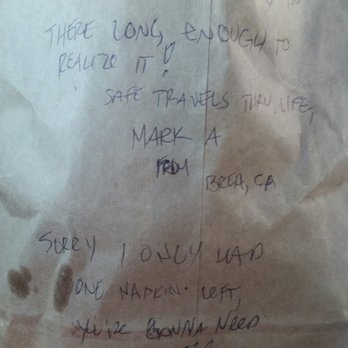 THERE LONG, ENOUGH TO
REALIZE IT!
SAFE TRAVELS THRU LIFE,
MARK A
FROM
BREA, CA
SORRY I ONLY HAD
ONE NAPKIN LEFT,
YOU'RE GONNA NEED